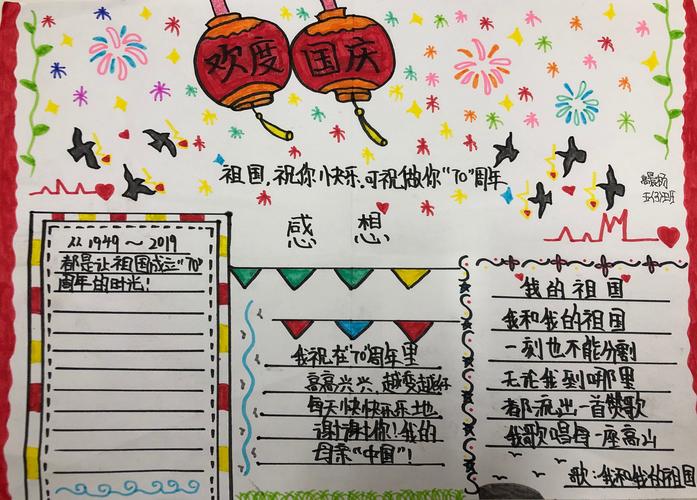 欢度 国庆
祖国,祝你快乐,可祝做你“70”周年
感 想
从1949～2019
都是让祖国成立“70”
周年的时光!
我祝在“70”周年里
高高兴兴、越变越好
每天快快乐乐地
谢谢你!我的
母亲“中国”!
我的祖国
我和我的祖国
一刻也不能分割
无论我到哪里
都流出一首赞歌
我歌唱每一座高山
歌:我和我的祖国